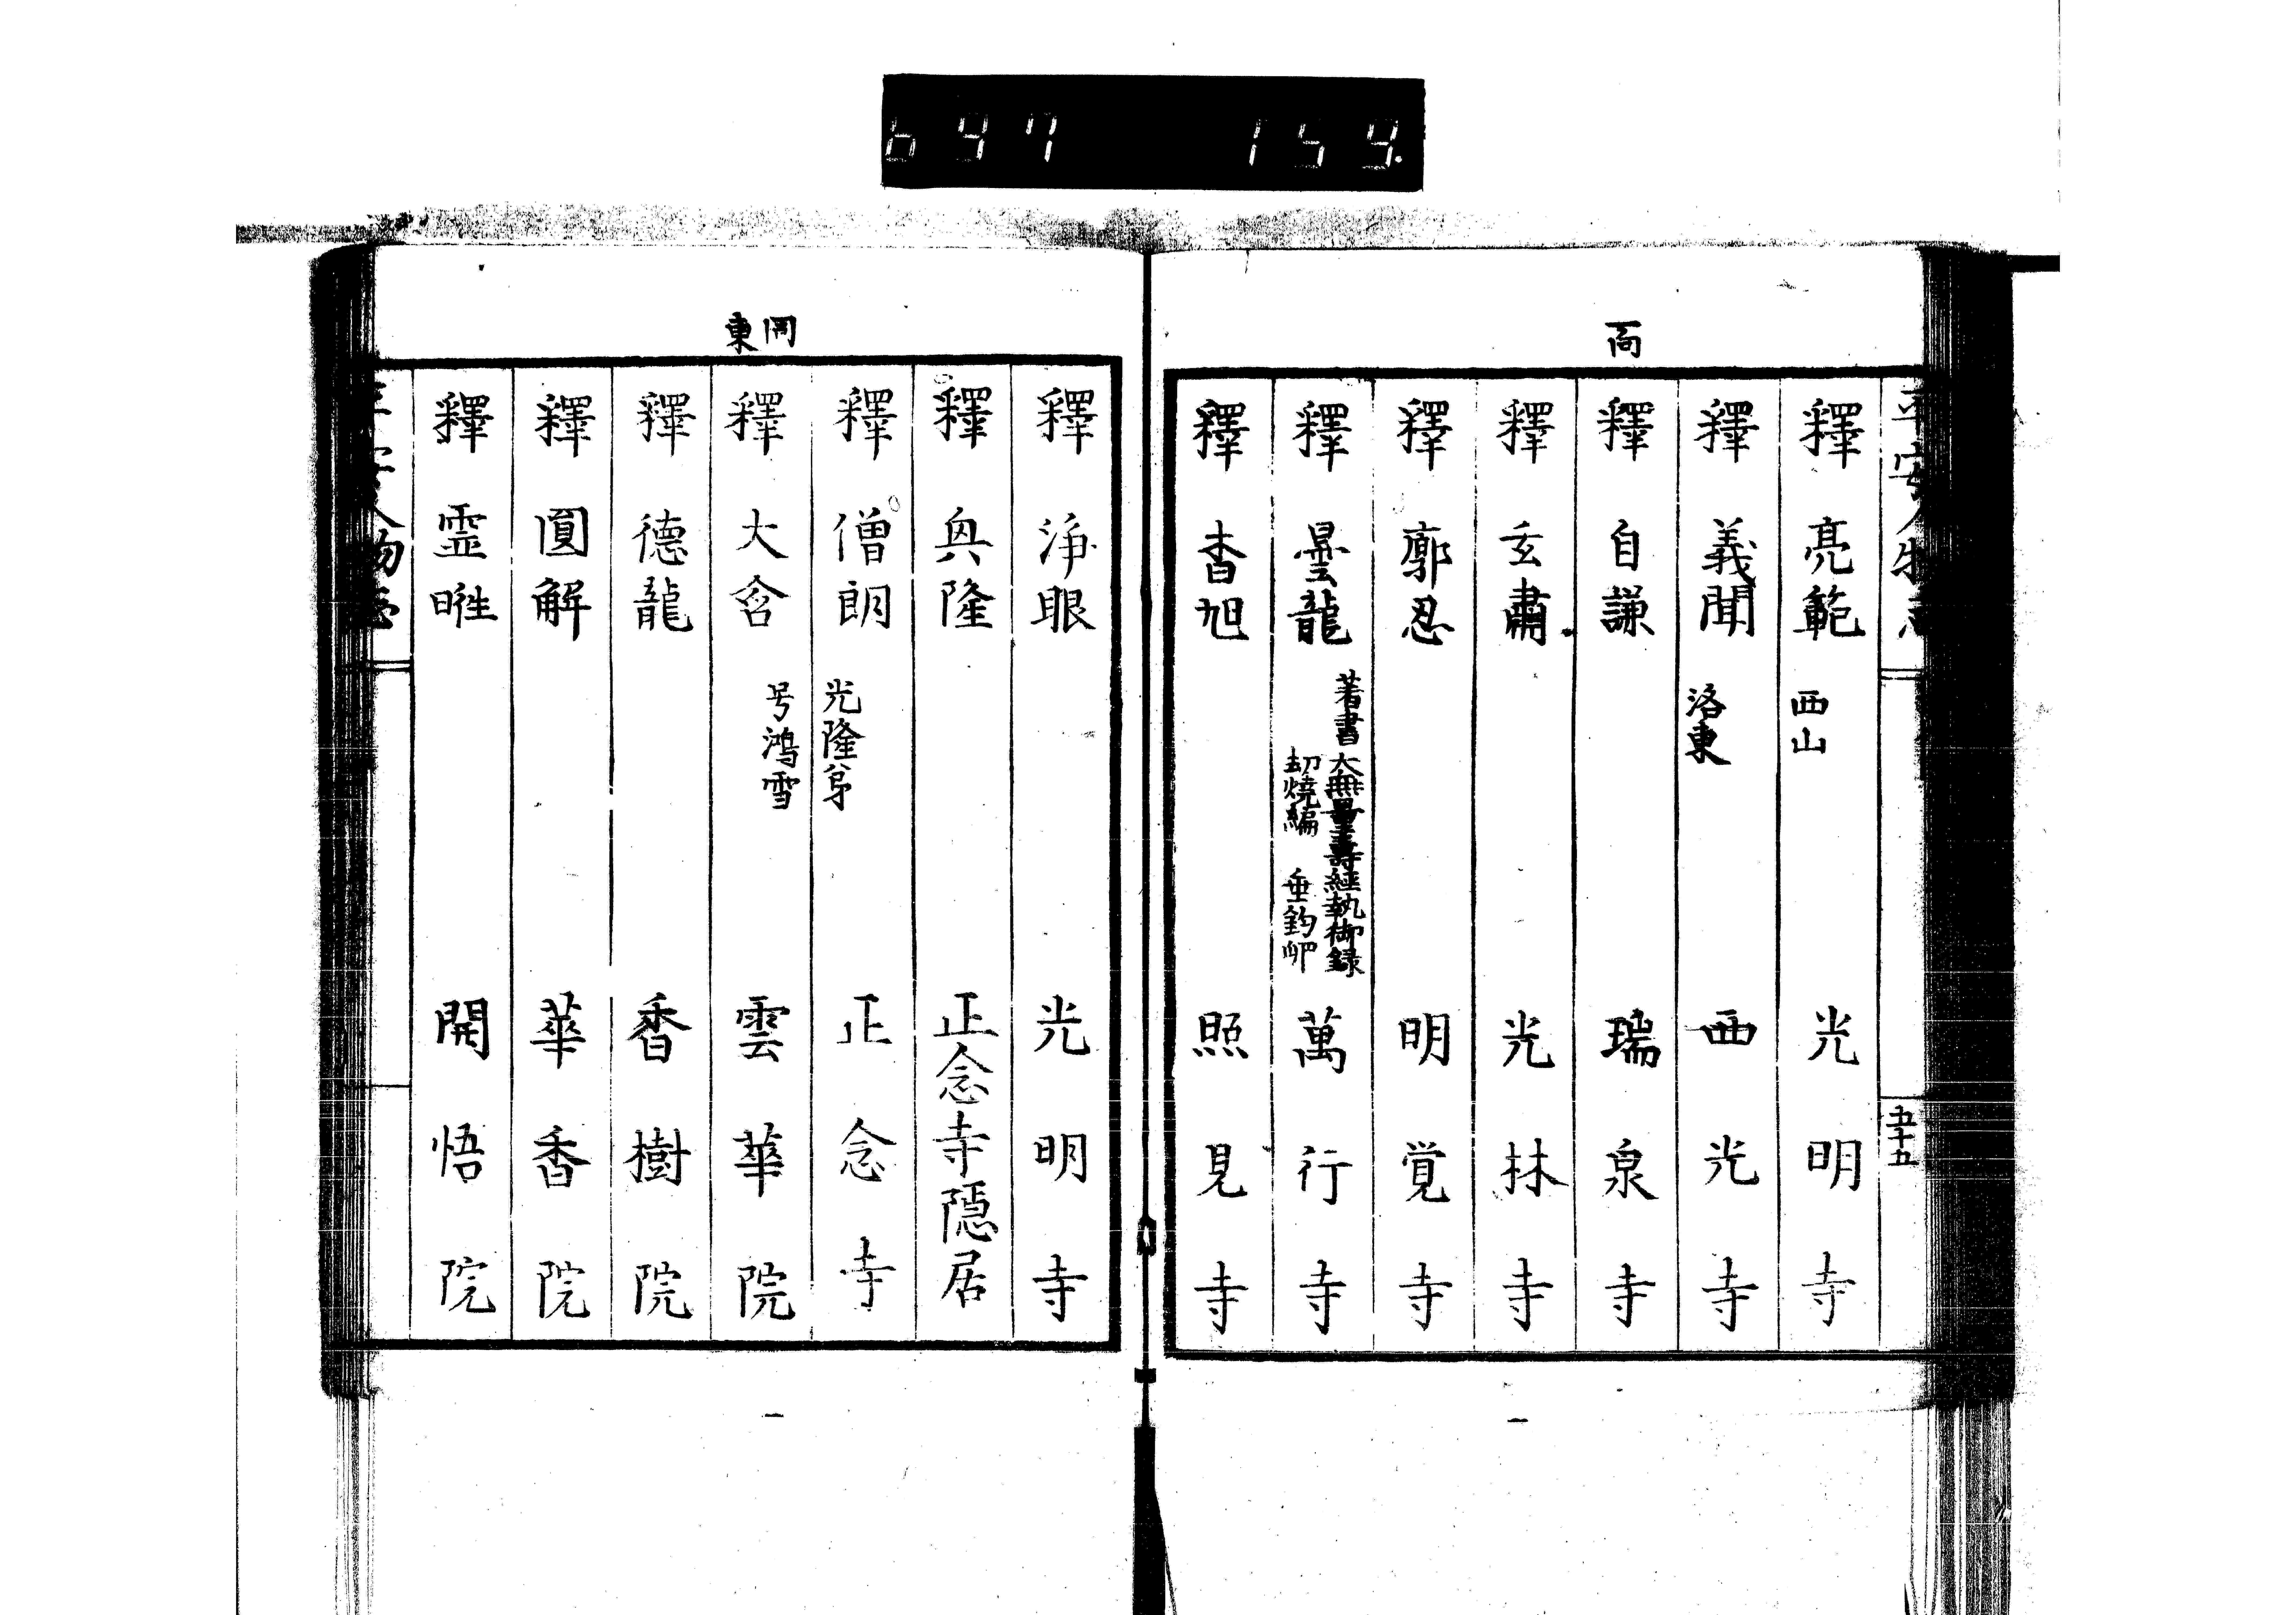 697 159
平安人物志
五十五
釋 亮範 西山 光明寺
釋 義聞 洛東 西光寺
釋 自謙 瑞泉寺
釋 玄肅 光林寺
釋 廓忍 明覚寺
釋 曇龍 著書 大無量壽經執御録
劫燒編 垂釣卯 萬行寺
釋 杳旭 照見寺
釋 淨眼 光明寺
釋 與隆 正念寺隱居
釋 僧朗 光隆弟 正念寺
釋 大含 号鴻雪 雲華院
同東
釋 德龍 香樹院
釋 圓解 華香院
釋 霊暀 開悟院
平安人物志